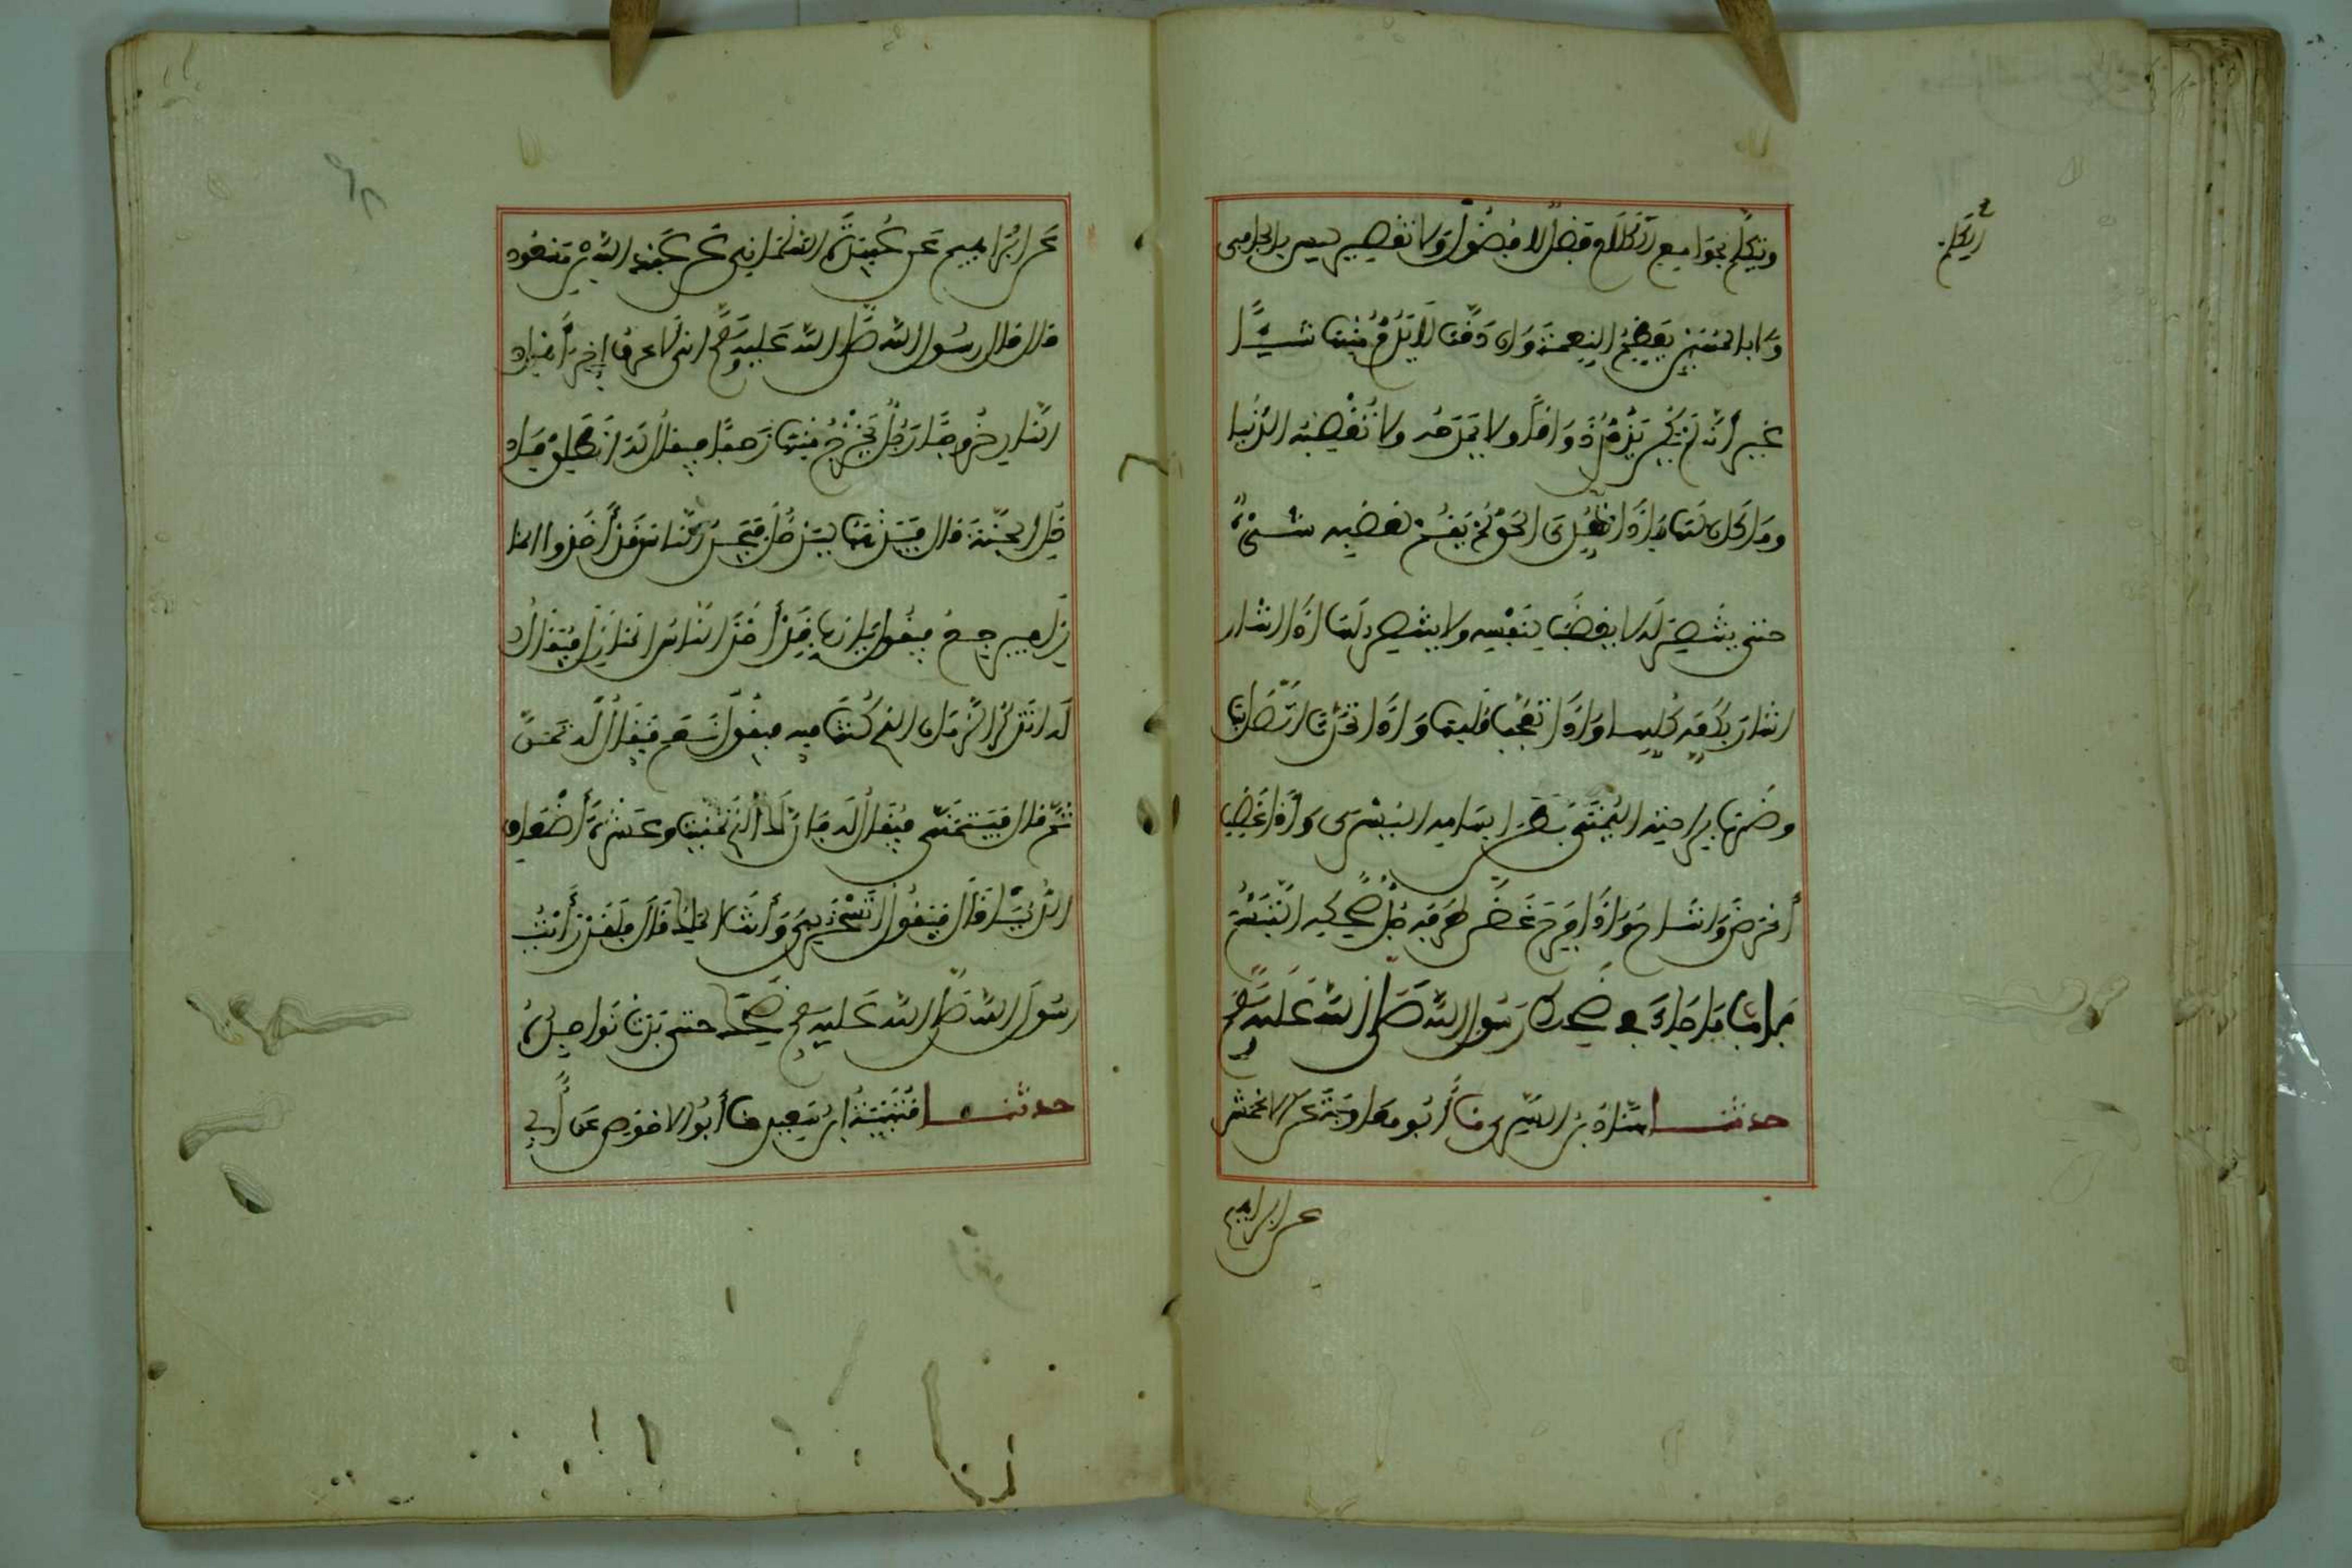 ويتكلم بجوامع الكلام فضل لا فضول ولا تقصير ليس بالجافي
الكلم
ولا بالمهين يعظم النعمة وان دقت لا يذم منها شيئا
غير أنه لم يكن يذم ذواقا ولا يمدحه ولا تغضبه الدنيا
وما كان لها فإذا تعدي الحق لم يقم لغضبه شيء
حتى ينتصر له لا يغضب لنفسه ولا ينتصر لها اذا اشار
اشار بكفه كلها واذا تعجب قلبها واذا تحدث اتصل بها
وضرب براحته اليمنى بطن ابهامه اليسرى واذا غضب
أعرض وأشاح واذا فرح غض طرفه جل ضحكه التبسم
باب ما جاء في ضحك رسول الله صلى الله عليه وسلم
حدثنا هناد بن السري نا أبو معاوية عن الاعمش
عن ابراهيم
عن ابراهيم عن عبيدة السلماني عن عبد الله بن مسعود
قال قال رسول الله صلى الله عليه وسلم اني لأعرف اخر أهل
النار خروجا رجل يخرج منها زحفا فيقال له انطلق فاد
خل الجنة قال فيذهب ليدخل فيجد الناس قد أخذوا المنا
زل فيرجع فيقول يا رب قد أخذ الناس المنازل فيقال
له اتذكر الزمان الذي كنت فيه فيقول نعم فيقال له تمن
ثم قال فيتمنى فيقال له فان لك الذي تمنيت وعشرة أضعاف
الدنيا قال فيقول أتسخر بي وأنت الملك قال فلقد رأيت
رسول الله صلى الله عليه وسلم ضحك حتى بدت نواجذه
حدثنا قتيبة ابن سعيد نا أبو الاحوص عن أبي